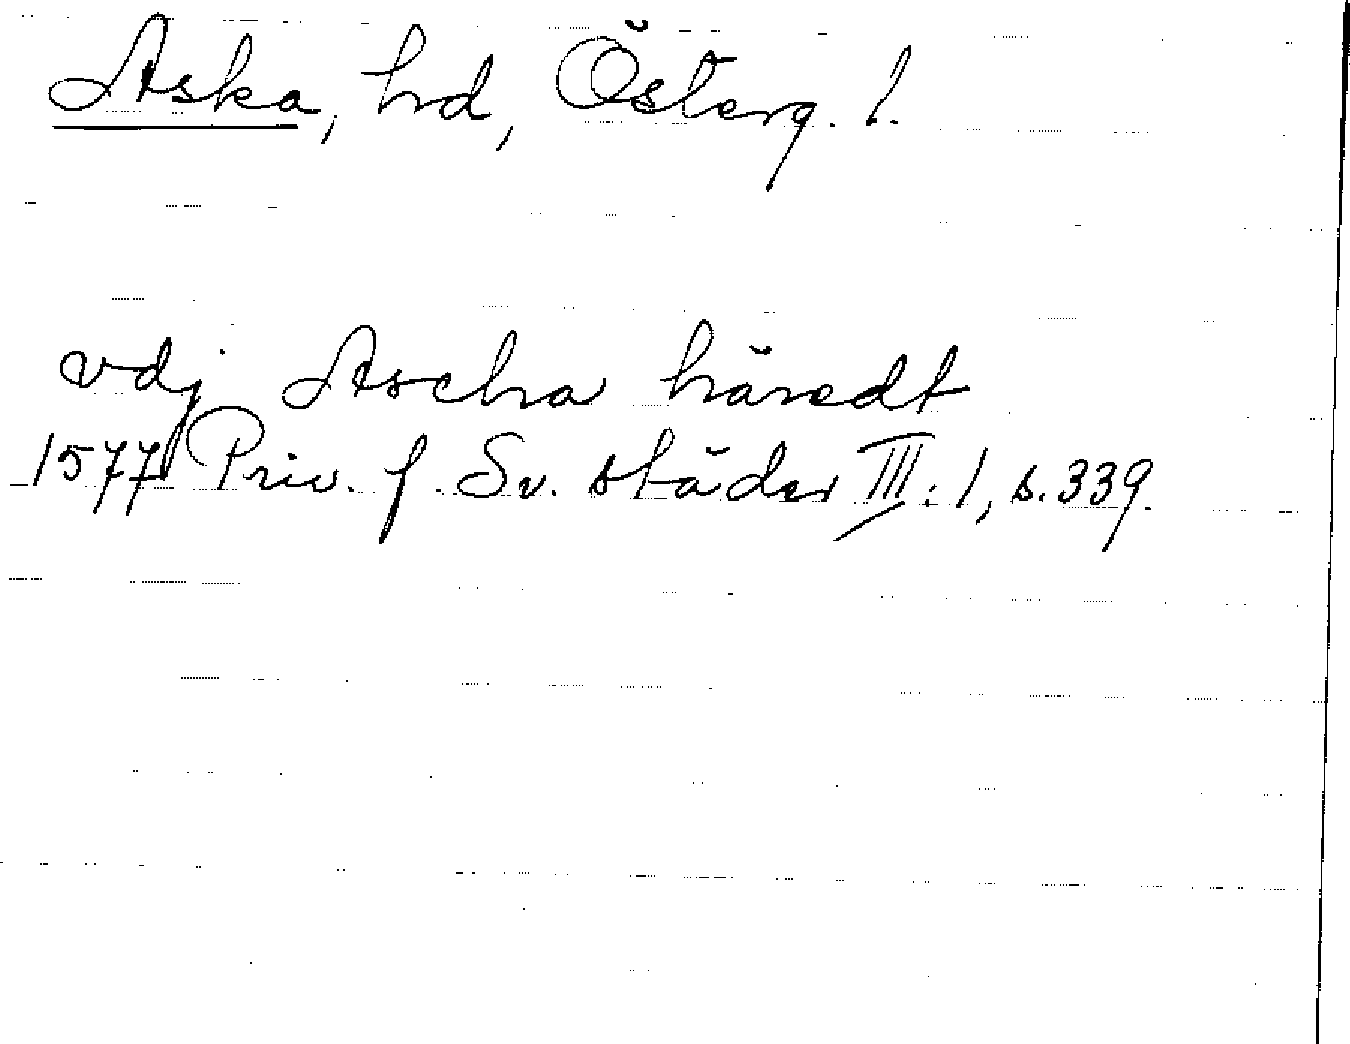 Aska, hd, Österg. l.
vdj Ascha häredt
1577 Priv. f. Sv. städer III: 1, s. 339.